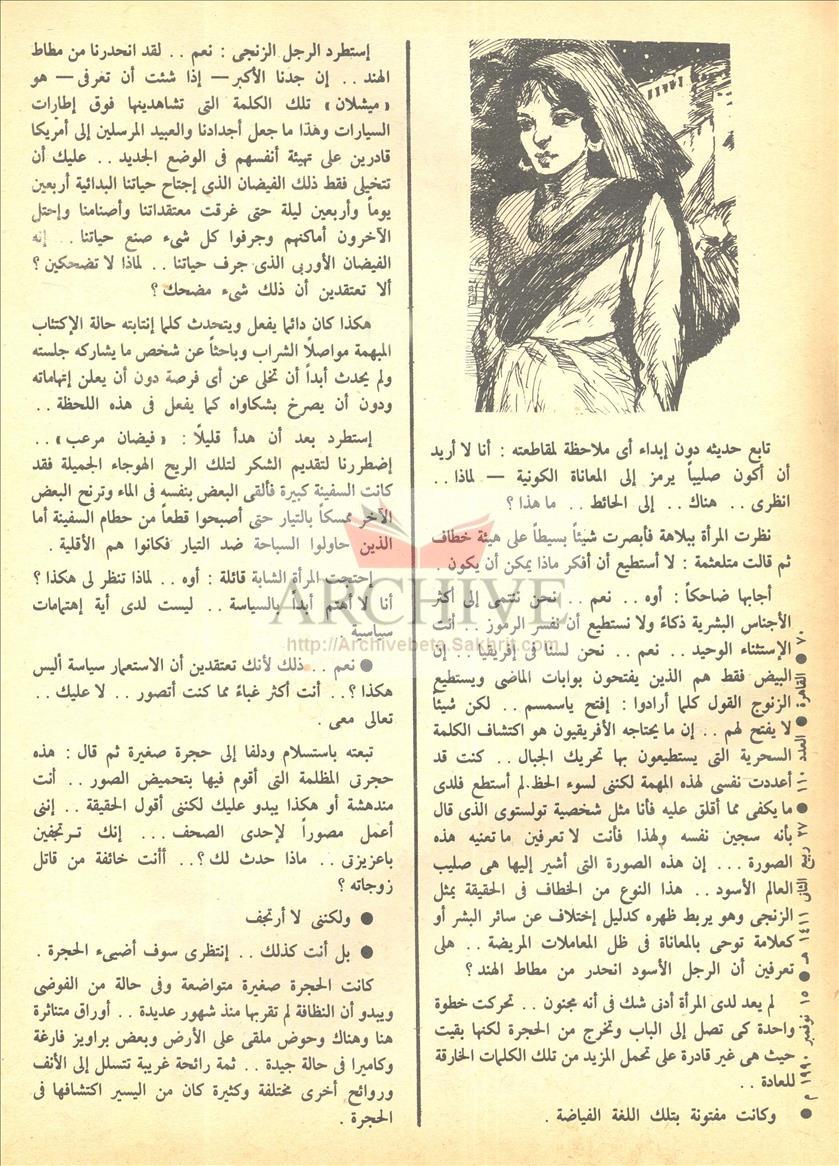 تابع حديثه دون إبداء أى ملاحظة لمقاطعته : أنا لا أريد
أن أكون صليباً يرمز إلى المعاناة الكونية — لماذا ..
انظرى .. هناك .. إلى الحائط .. ما هذا ؟
نظرت المرأة ببلاهة فأبصرت شيئاً بسيطاً على هيئة خطاف
ثم قالت متلعثمة : لا أستطيع أن أفكر ماذا يمكن أن يكون .
أجابها ضاحكاً : أوه .. نعم .. نحن ننتمى إلى أكثر
الأجناس البشرية ذكاءً ولا نستطيع أن نفسر الرموز .. أنت
الإستثناء الوحيد .. نعم .. نحن لسنا فى إفريقيا .. إن
البيض فقط هم الذين يفتحون بوابات الماضى ويستطيع
الزنوج القول كلما أرادوا : إفتح ياسمسم .. لكن شيئاً
لا يفتح لهم .. إن ما يحتاجه الأفريقيون هو اكتشاف الكلمة
السحرية التى يستطيعون بها تحريك الجبال .. كنت قد
أعددت نفسى لهذه المهمة لكننى لسوء الحظ لم أستطع فلدى
ما يكفى مما أقلق عليه فأنا مثل شخصية تولستوى الذى قال
بأنه سجين نفسه ولهذا فأنت لا تعرفين ما تعنيه هذه
الصورة ... إن هذه الصورة التى أشير إليها هى صليب
العالم الأسود .. هذا النوع من الخطاف فى الحقيقة يمثل
الزنجى وهو يربط ظهره كدليل إختلاف عن سائر البشر أو
كعلامة توحى بالمعاناة فى ظل المعاملات المريضة .. هلى
تعرفين أن الرجل الأسود انحدر من مطاط الهند ؟
لم يعد لدى المرأة أدنى شك فى أنه مجنون .. تحركت خطوة
واحدة كى تصل إلى الباب وتخرج من الحجرة لكنها بقيت
حيث هى غير قادرة على تحمل المزيد من تلك الكلمات الخارقة
للعادة ..
● وكانت مفتونة بتلك اللغة الفياضة .
إستطرد الرجل الزنجى : نعم .. لقد انحدرنا من مطاط
الهند .. إن جدنا الأكبر — إذا شئت أن تعرفى — هو
« ميشلان » تلك الكلمة التى تشاهدينها فوق إطارات
السيارات وهذا ما جعل أجدادنا والعبيد المرسلين إلى أمريكا
قادرين على تهيئة أنفسهم فى الوضع الجديد .. عليك أن
تتخيلى فقط ذلك الفيضان الذى إجتاح حياتنا البدائية أربعين
يوماً وأربعين ليلة حتى غرقت معتقداتنا وأصنامنا وإحتل
الآخرون أماكنهم وجرفوا كل شىء صنع حياتنا .. إنه
الفيضان الأوربى الذى جرف حياتنا .. لماذا لا تضحكين ؟
ألا تعتقدين أن ذلك شىء مضحك ؟
هكذا كان دائما يفعل ويتحدث كلما إنتابته حالة الإكتئاب
المبهمة مواصلًا الشراب وباحثاً عن شخص ما يشاركه جلسته
ولم يحدث أبداً أن تخلى عن أى فرصة دون أن يعلن إتهاماته
ودون أن يصرخ بشكاواه كما يفعل فى هذه اللحظة ..
إستطرد بعد أن هدأ قليلًا : « فيضان مرعب » ..
إضطررنا لتقديم الشكر لتلك الريح الهوجاء الجميلة فقد
كانت السفينة كبيرة فألقى البعض بنفسه فى الماء وترنح البعض
الآخر ممسكاً بالتيار حتى أصبحوا قطعاً من حطام السفينة أما
الذين حاولوا السباحة ضد التيار فكانوا هم الأقلية .
إحتجت المرأة الشابة قائلة : أوه .. لماذا تنظر لى هكذا ؟
أنا لا أهتم أبداً بالسياسة .. ليست لدى أية إهتمامات
سياسية .
● نعم .. ذلك لأنك تعتقدين أن الاستعمار سياسة أليس
هكذا ؟ .. أنت أكثر غباءً مما كنت أتصور .. لا عليك ..
تعالى معى .
تبعته باستسلام ودلفا إلى حجرة صغيرة ثم قال : هذه
حجرتى المظلمة التى أقوم فيها بتحميض الصور .. أنت
مندهشة أو هكذا يبدو عليك لكننى أقول الحقيقة .. إننى
أعمل مصوراً لإحدى الصحف ... إنك ترتجفين
ياعزيزتى .. ماذا حدث لك ؟ .. أأنت خائفة من قاتل
زوجاته ؟
● ولكننى لا أرتجف
● بل أنت كذلك .. إنتظرى سوف أضيىء الحجرة .
كانت الحجرة صغيرة متواضعة وفى حالة من الفوضى
ويبدو أن النظافة لم تقربها منذ شهور عديدة .. أوراق متناثرة
هنا وهناك وحوض ملقى على الأرض وبعض براويز فارغة
وكاميرا فى حالة جيدة .. ثمة رائحة غريبة تتسلل إلى الأنف
وروائح أخرى مختلفة وكثيرة كان من اليسير اكتشافها فى
الحجرة .
٧٠ ● القاهرة ● العدد ١١٠ ● ٢٧ ربيع الثانى ١٤١١ هـ ● ١٥ نوفمبر ١٩٩٠ م ●
ARCHIVE
http://Archivebeta.Sakhrit.com